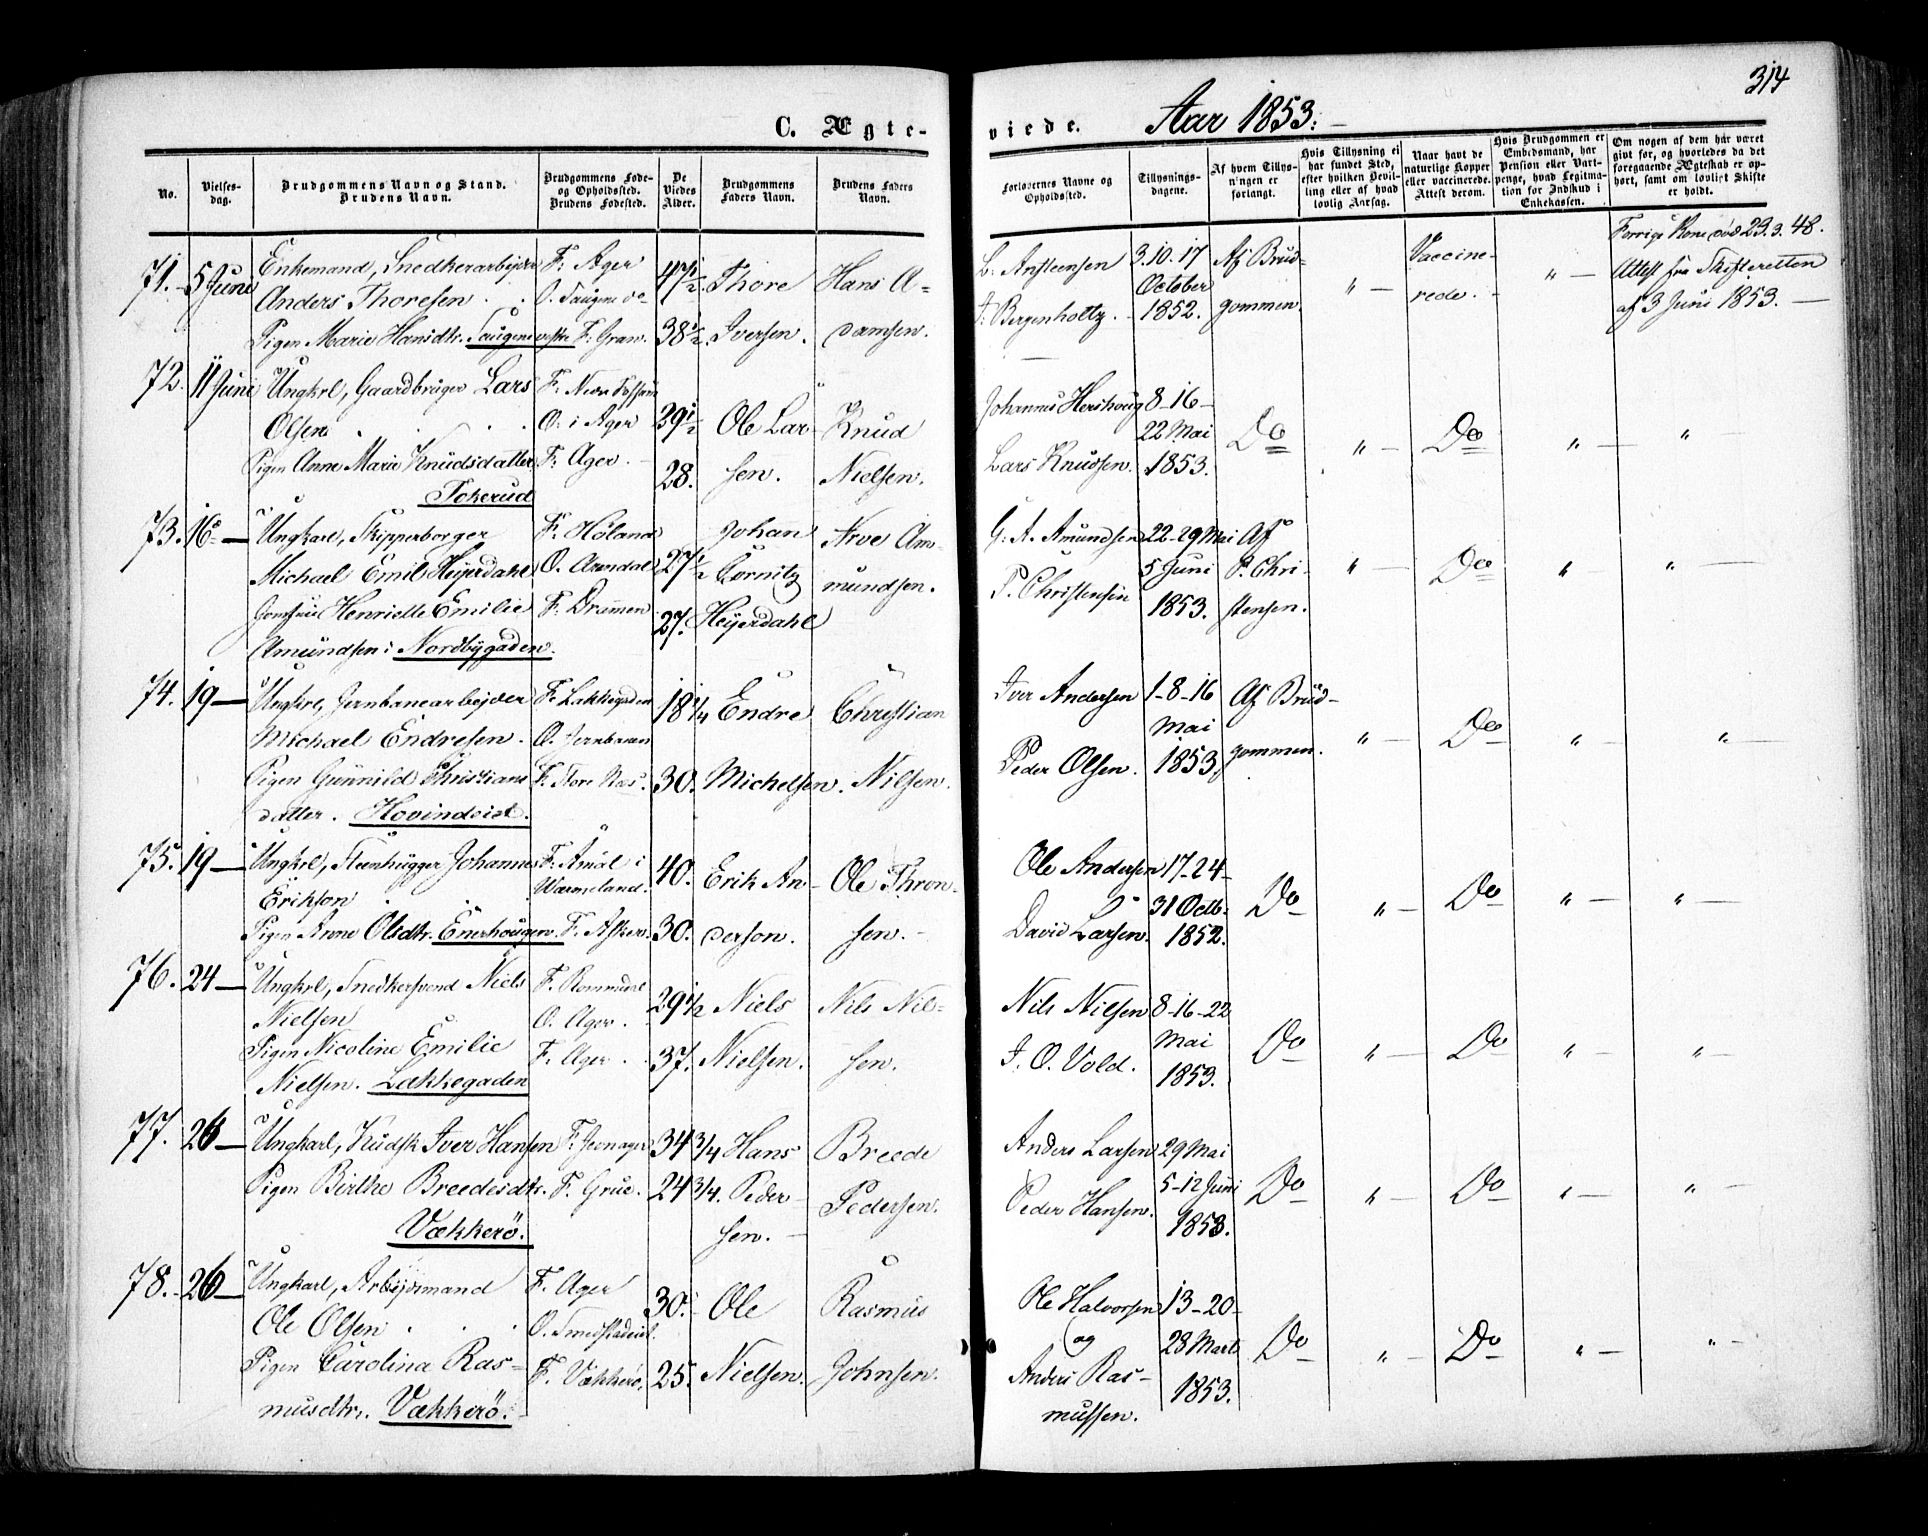 314
C. Ægte-
viede. Aar 1853.
No.
Vielses-
dag.
Brudgommens Navn og Stand.
Brudens Navn.
Brudgommens Føde-
og Opholdssted.
Brudens Fødested.
De
Viedes
Alder.
Brudgommens
Faders Navn.
Brudens Faders
Navn.
Forlovernes Navne og
Opholdssted.
Tillysnings-
dagene.
Af hvem Tillys-
ningen er
forlangt.
Hvis Tillysning ei
har fundet Sted,
efter hvilken Bevil-
ling eller af hvad
lovlig Aarsag.
Naar havt de
naturlige Kopper
eller vaccinerede.
Attest derom.
Hvis Brudgommen er
Embedsmand, har
Pension eller Vart-
penge, hvad Legitima-
tion for Indskud i
Enkekassen.
Om nogen af dem har været
gift før, og hvorledes da det
foregaaende Ægteskab er op-
hørt, samt om lovligt Skifte
er holdt.
71. 5 Juni Enkemand, Snedkerarbeider F. Ager 47½ Thore Hans A-
Anders Thoresen O.
Pigen Marie Hansdtr. F. Gran. 38½ Iversen. damsen.
L. Ansteensen 3. 10. 17 Af Brud- " Vaccine- " Forrige Kone død 23. 3. 48.
October rede. Attest fra Skifteretten
J. Bergenholtz. 1852. gommen. af 3 Juni 1853.
72. 11 Juni Ungkrl, Gaardbruger Lars F. Nedre Fossum
Olsen O. i Ager 39½ Ole Lar- Knud
Pigen Anne Marie Knudsdatter. F. Ager. 28. sen. Nielsen.
Tokerud
Johannes Hershoug 8-16-
22 Mai Do " Do " "
Lars Knudsen. 1853.
73. 16 Ungkarl, Skipperborger F. Høland Johan Arve Am-
Michael Emil Heyerdahl O. Arendal 27½ Cornitz mundsen.
Jomfrue Henriette Emilie F. Drammen 27. Heyerdahl
Amundsen i Nordbygaden.
G. A. Amundsen 22-29 Mai Af
5 Juni P. Chri- " Do " "
P. Christensen 1853. stensen.
74. 19 Ungkrl, Jernbanearbejder F. Lakkegaden 18¼ Endre Christian
Michael Endresen. O. Jernbanen
Pigen Gunnild Christians F. Store Næs. 30. Michelsen. Nilsen.
datter. Hovindeiet.
Iver Andersen 1-8-16 Af Brud-
Mai " Do " "
Peder Olsen. 1853. gommen.
75. 19 Ungkrl, Steenhugger Johannes F. Åmål i 40. Erik An- Ole Thron-
Erikson Wærmeland.
Pigen Anne Olsdtr. Enerhougen. F. Asker. 30. derson. sen.
Ole Andersen 17-24-
31 Octb. Do " Do " "
David Larsen. 1852.
76. 24 Ungkrl, Snedkersvend Niels F. Romsdal 29½ Niels Nils Nil-
Nielsen O. Ager.
Pigen Nicoline Emilie F. Ager. 37. Nielsen. sen.
Nielsen. Lakkegaden
Nils Nilsen 8-16-22
Mai Do " Do " "
J. O. Vold. 1853.
77. 26 Ungkarl, Kudsk Iver Hansen F. Jevnager 34¾ Hans Breede
Pigen Birthe Breedesdtr. F. Grue. 24¾. Peder- Pedersen.
Vækkerø. sen.
Anders Larsen 29 Mai
5-12 Juni Do " Do " "
Peder Hansen. 1853.
78. 26 Ungkarl, Arbejdsmand F. Ager 30. Ole Rasmus
Ole Olsen O. Smedstadeiet.
Pigen Carolina Ras- F. Vækkerø. 25. Nielsen. Johnsen.
musdtr. Vækkerø.
Ole Halvorsen 13-20-
og 28 Marts Do " Do " "
Anders Ras- 1853.
mussen.